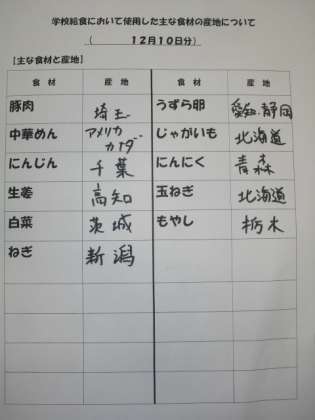 学校給食において使用した主な食材の産地について
( 12月10日分)
[主な食材と産地]
食 材 産 地 食 材 産 地
豚肉 埼玉 うずら卵 愛知.静岡
中華めん アメリカ カナダ じゃがいも 北海道
にんじん 千葉 にんにく 青森
生姜 高知 玉ねぎ 北海道
白菜 茨城 もやし 栃木
ねぎ 新潟